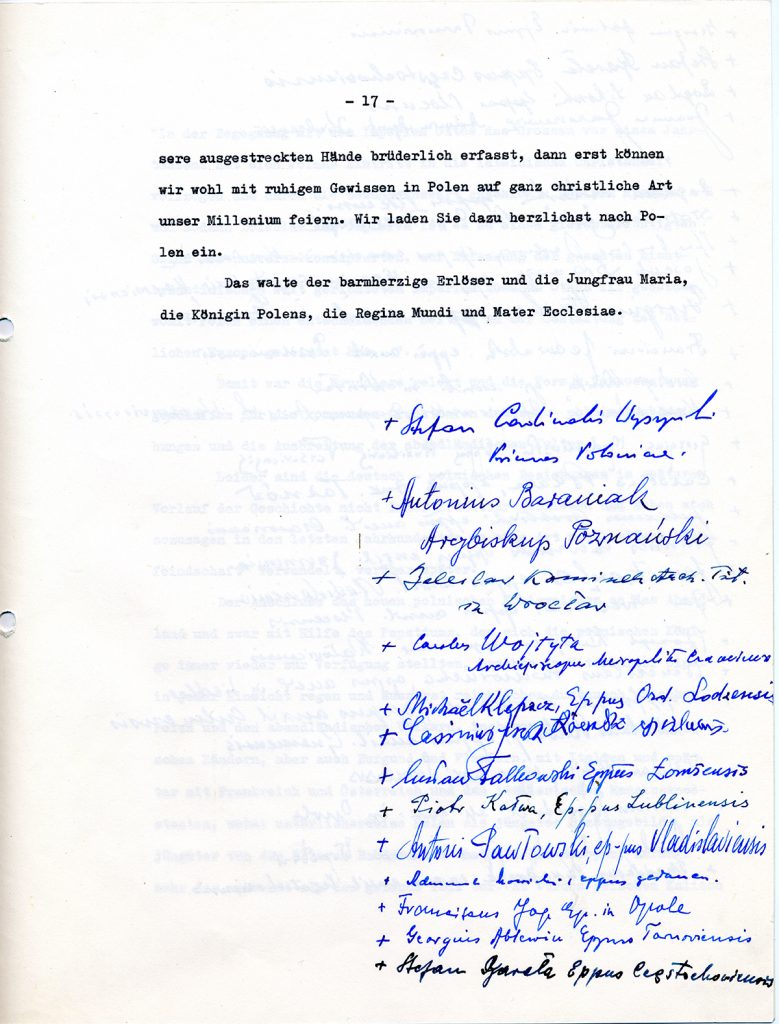 - 17 -
sere ausgestreckten Hände brüderlich erfasst, dann erst können
wir wohl mit ruhigem Gewissen in Polen auf ganz christliche Art
unser Millenium feiern. Wir laden Sie dazu herzlichst nach Po-
len ein.
Das walte der barmherzige Erlöser und die Jungfrau Maria,
die Königin Polens, die Regina Mundi und Mater Ecclesiae.
+ Stefan Cardinalis Wyszyński
Primas Poloniae.
+ Antonius Baraniak
Arcybiskup Poznański
+ Boleslav Kominek Arch. Tit.
in Wrocław
+ Carolus Wojtyła
Archiepiscopus Metropolita Cracoviensis
+ Michaël Klepacz, Eppus Ord. Lodzensis
+ Casimirus
+ Czesław Falkowski Eppus Łomżensis
+ Piotr Kałwa, Ep-pus Lublinensis
+ Antoni Pawłowski, ep-pus Vladislaviensis
+ eppus gedanen.
+ Franciscus Jop Ep. in Opole
+ Georgius Ablewicz Eppus Tarnoviensis
+ Stefan Bareła Eppus Częstochoviensis